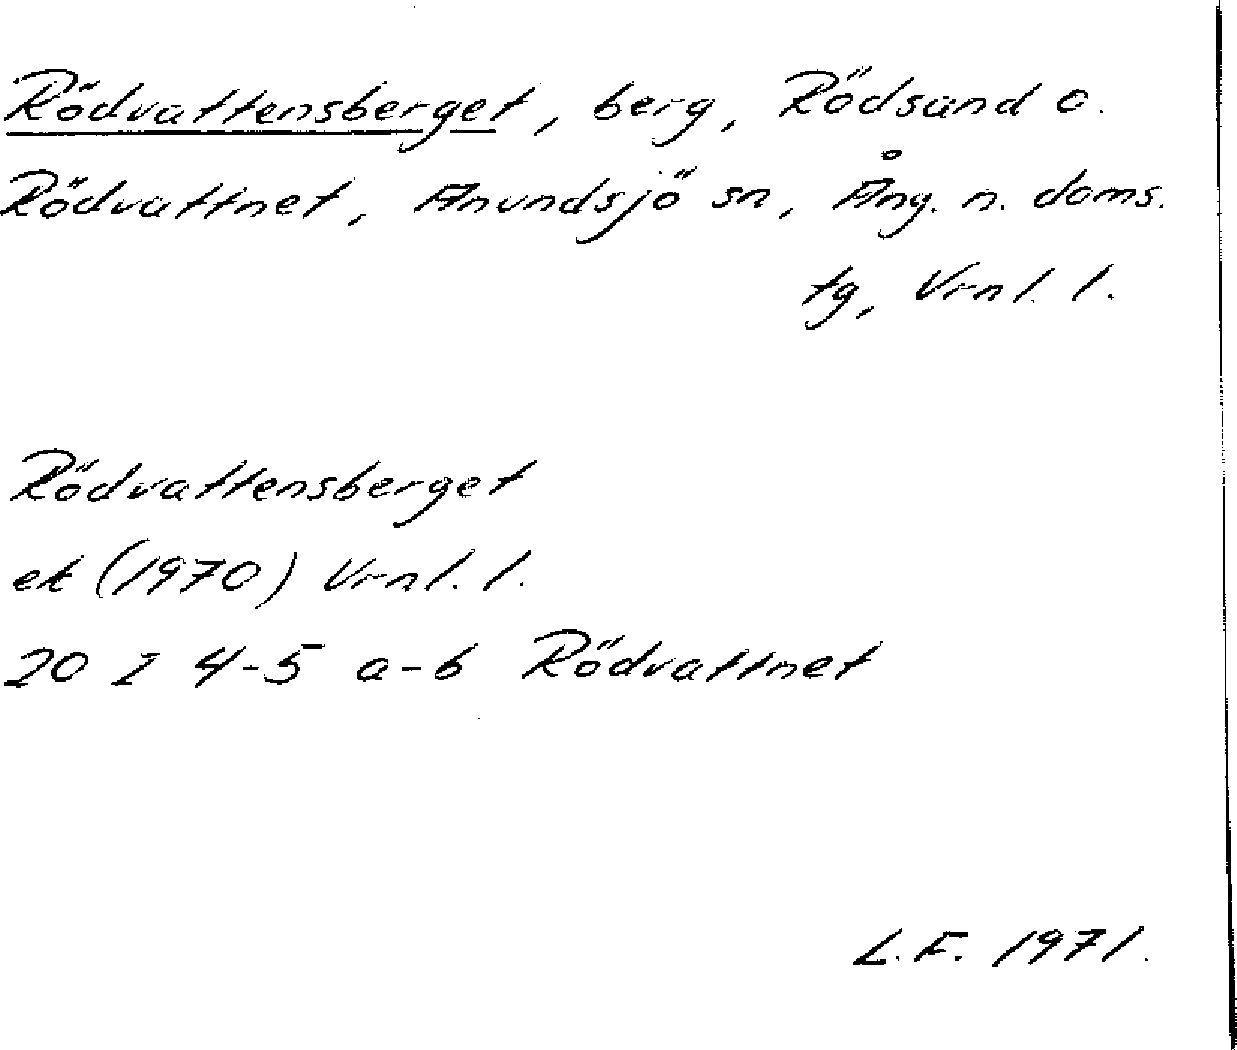 Rödvattensberget, berg, Rödsand o.
Rödvattnet, Anundsjö sn, Ång. n. doms.
tg, Vrnl. l.
Rödvattensberget
ek (1970) Vrnl. l.
20 I 4-5 a-b Rödvattnet
L.F. 1971.